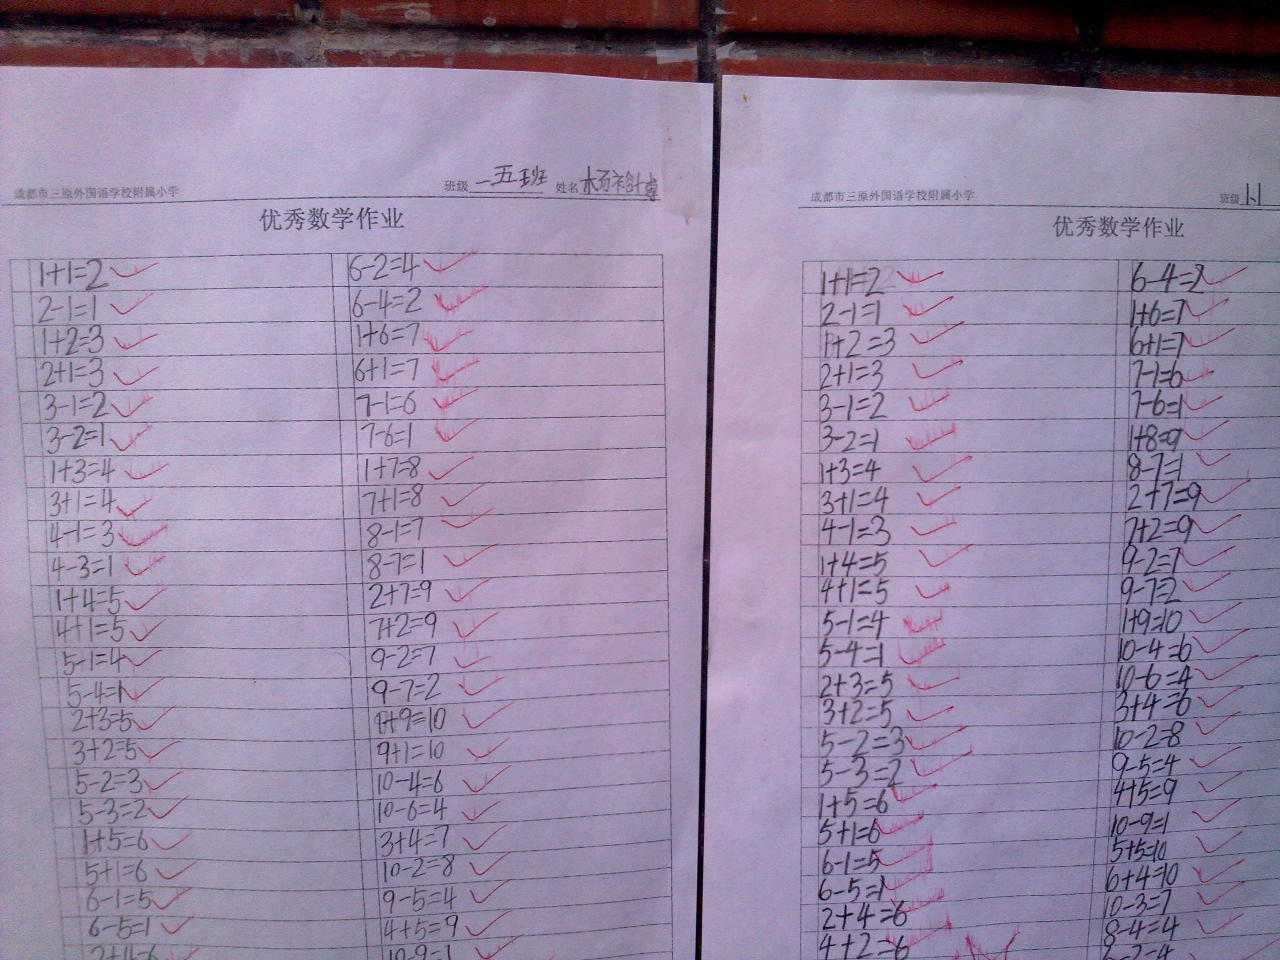 成都市三原外国语学校附属小学
班级 一五班 姓名
优秀数学作业
1+1=2
2-1=1
1+2=3
2+1=3
3-1=2
3-2=1
1+3=4
3+1=4
4-1=3
4-3=1
1+4=5
4+1=5
5-1=4
5-4=1
2+3=5
3+2=5
5-2=3
5-3=2
1+5=6
5+1=6
6-1=5
6-5=1
2+4=6
6-2=4
6-4=2
1+6=7
6+1=7
7-1=6
7-6=1
1+7=8
7+1=8
8-1=7
8-7=1
2+7=9
7+2=9
9-2=7
9-7=2
1+9=10
9+1=10
10-4=6
10-6=4
3+4=7
10-2=8
9-5=4
4+5=9
10-9=1
成都市三原外国语学校附属小学
班级
优秀数学作业
1+1=2
2-1=1
1+2=3
2+1=3
3-1=2
3-2=1
1+3=4
3+1=4
4-1=3
1+4=5
4+1=5
5-1=4
5-4=1
2+3=5
3+2=5
5-2=3
5-3=2
1+5=6
5+1=6
6-1=5
6-5=1
2+4=6
4+2=6
6-4=2
1+6=7
6+1=7
7-1=6
7-6=1
1+8=9
8-7=1
2+7=9
7+2=9
9-2=7
9-7=2
1+9=10
10-4=6
10-6=4
3+4=6
10-2=8
9-5=4
4+5=9
10-9=1
5+5=10
6+4=10
10-3=7
8-4=4